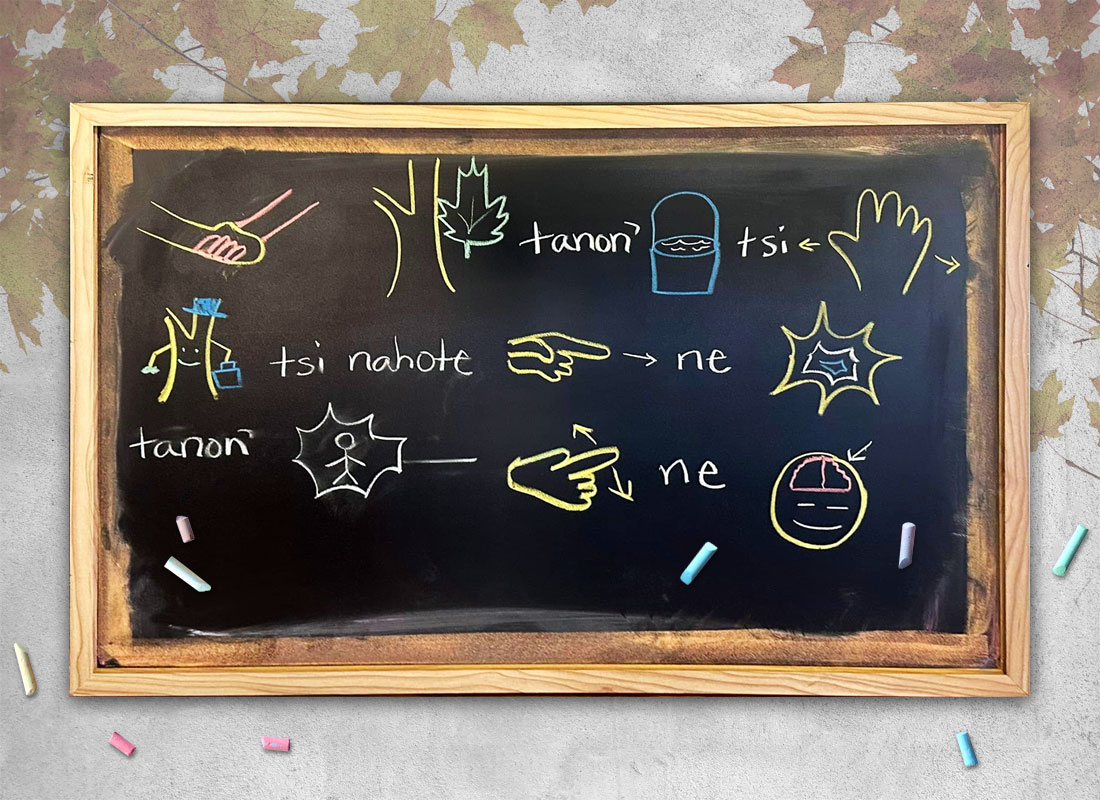 tanon' tsi
tsi nahote ne
tanon' ne